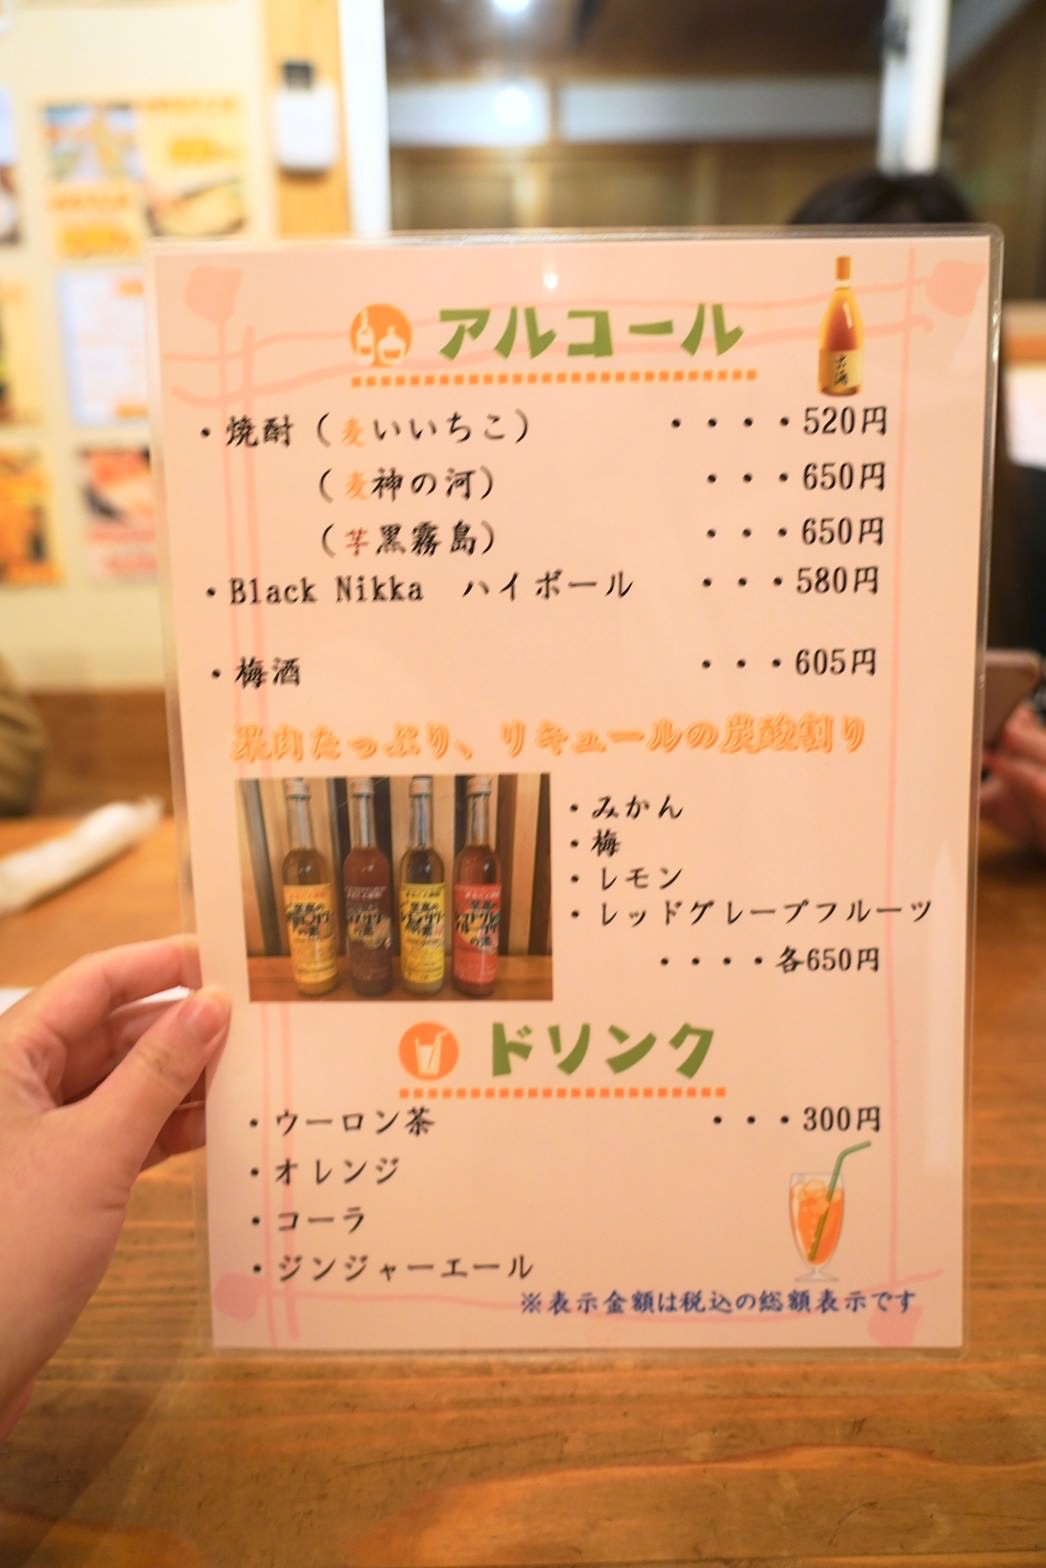 アルコール
・焼酎(麦いいちこ) ・・・・520円
(麦神の河) ・・・650円
(芋黒霧島) ・・・650円
・Black Nikka ハイボール ・・・580円
・梅酒 ・・・605円
果肉たっぷり、リキュールの炭酸割り
・みかん
・梅
・レモン
・レッドグレープフルーツ
・・・・各650円
ドリンク
・ウーロン茶 ・・・300円
・オレンジ
・コーラ
・ジンジャーエール
※表示金額は税込の総額表示です